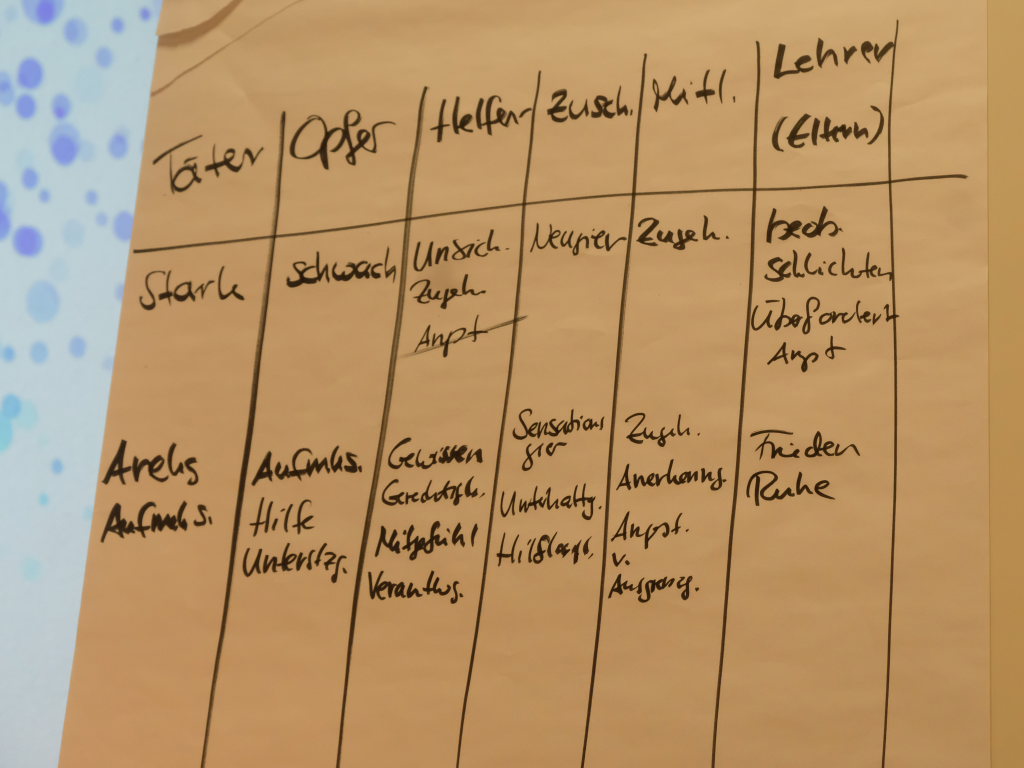 Täter
Opfer
Helfer
Zusch.
Mitl.
Lehrer
(Eltern)
Stark
schwach
Unsich.
Zugeh.
Angst
Neugier
Zugeh.
beob.
schlichten
Überfordert
Angst
Anerkg
Aufmks.
Aufmks.
Hilfe
Unterstzg.
Gewissen
Gerechtigk.
Mitgefühl
Verantwg.
Sensations
gier
Unterhaltg.
Hilflosigk.
Zugeh.
Anerkenng.
Angst.
v.
Ausgrenzg.
Frieden
Ruhe